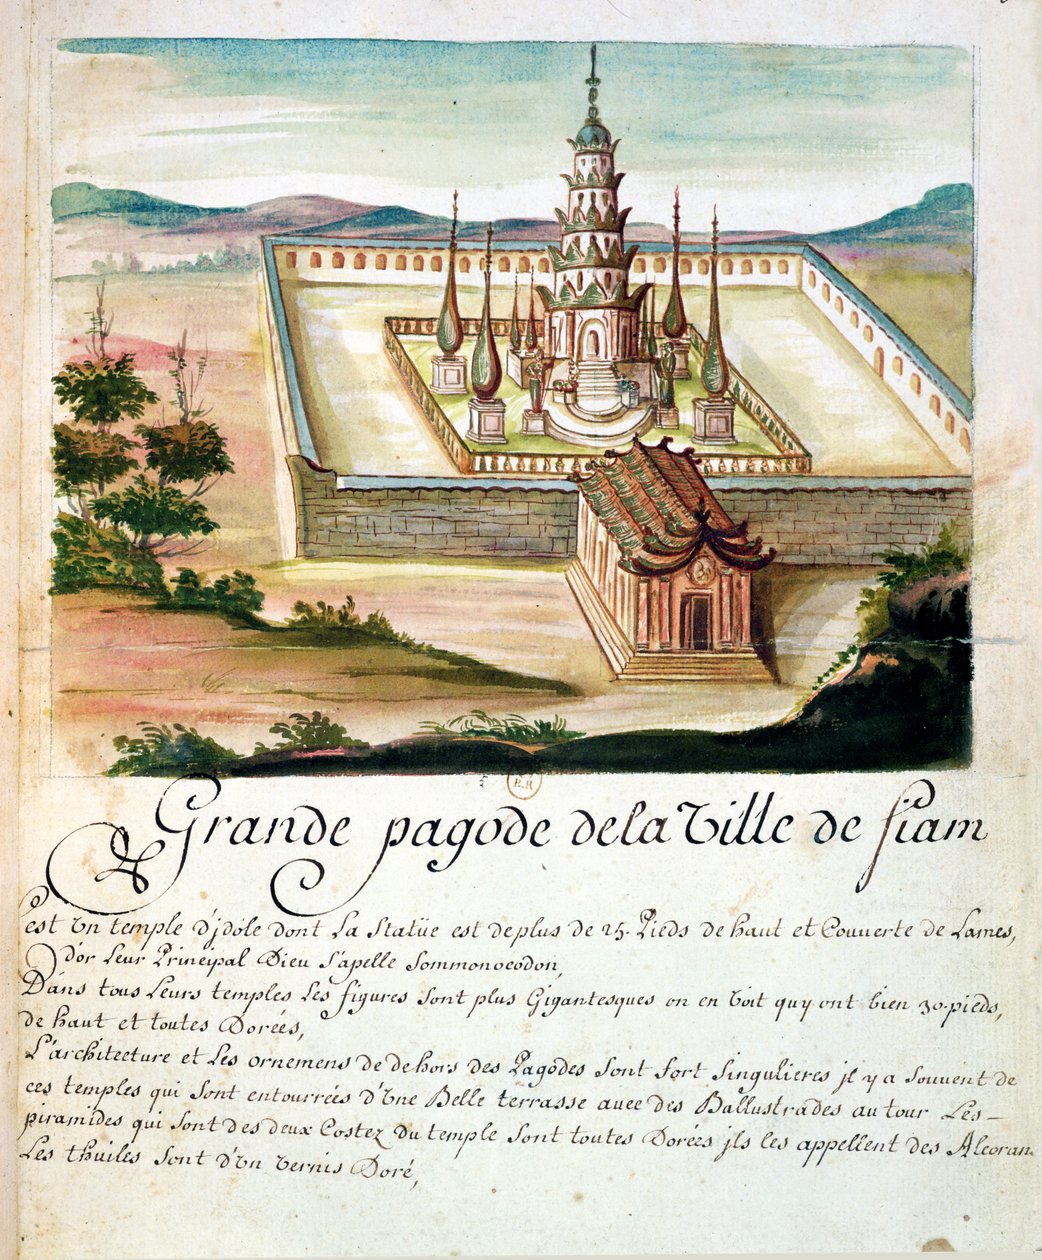 Grande pagode de la Ville de siam
est Vn temple d'jdole dont La statüe est de plus de 25. Pieds de haut et Couverte de Lames,
d'or Leur Principal Dieu s'apelle Sommonocodon,
Dans tous Leurs temples Les figures sont plus Gigantesques on en voit quy ont bien 30. pieds,
de haut et toutes Dorées,
L'architecture et Les ornemens de dehors des Pagodes sont fort singulieres jl y a souvent de
ces temples qui sont entourrées d'Vne Belle terrasse avec des Ballustrades au tour Les
piramides qui sont des deux Costez du temple sont toutes Dorées jls les appellent des Alcoran
Les thuiles sont d'Vn vernis Doré,